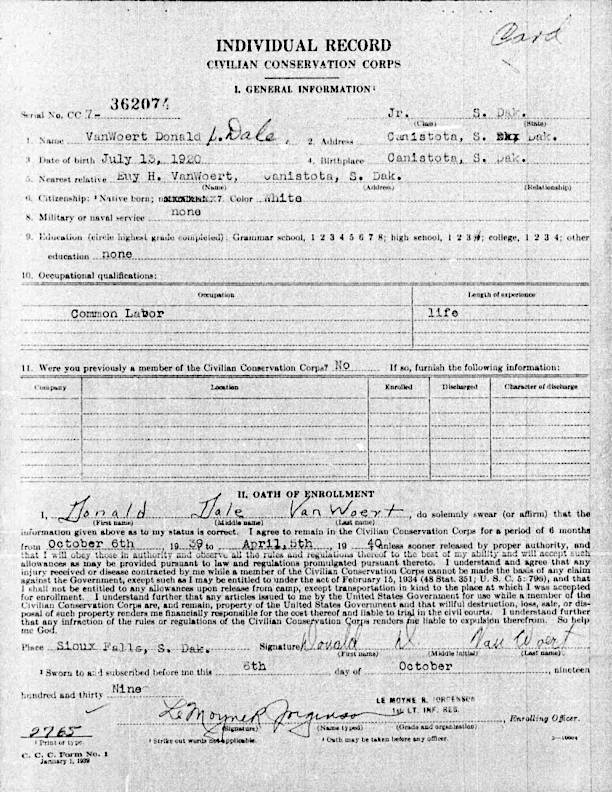 Card
INDIVIDUAL RECORD
CIVILIAN CONSERVATION CORPS
I. GENERAL INFORMATION
Serial No. CC 7- 362074 Jr. S. Dak.
(Class) (State)
1. Name VanWoert Donald Dale 2. Address Canistota, S. Dak.
3 Date of birth July 13, 1920 4. Birthplace Canistota, S. Dak.
5. Nearest relative H. VanWoert, Canistota, S. Dak.
(Name) (Address) (Relationship)
6. Citizenship: ¹ Native born; 7. Color White
8. Military or naval service none
9. Education (circle highest grade completed). Grammar school, 1 2 3 4 5 6 7 8; high school, 1 2 3 4; college, 1 2 3 4; other
education none
10. Occupational qualifications:
Occupation Length of experience
Common Labor life
11. Were you previously a member of the Civilian Conservation Corps? No If so, furnish the following information:
Company Location Enrolled Discharged Character of discharge
II. OATH OF ENROLLMENT
I, Donald Dale VanWoert, do solemnly swear (or affirm) that the
(First name) (Middle name) (Last name)
information given above as to my status is correct. I agree to remain in the Civilian Conservation Corps for a period of 6 months
from October 6th 19 39 to April, 5th 19 40 unless sooner released by proper authority, and
that I will obey those in authority and observe all the rules and regulations thereof to the best of my ability and will accept such
allowances as may be provided pursuant to law and regulations promulgated pursuant thereto. I understand and agree that any
injury received or disease contracted by me while a member of the Civilian Conservation Corps cannot be made the basis of any claim
against the Government, except such as I may be entitled to under the act of February 15, 1934 (48 Stat. 351; U. S. C. 5: 796), and that
I shall not be entitled to any allowances upon release from camp, except transportation in kind to the place at which I was accepted
for enrollment. I understand further that any articles issued to me by the United States Government for use while a member of the
Civilian Conservation Corps are, and remain, property of the United States Government and that willful destruction, loss, sale, or dis-
posal of such property renders me financially responsible for the cost thereof and liable to trial in the civil courts. I understand further
that any infraction of the rules or regulations of the Civilian Conservation Corps renders me liable to expulsion therefrom. So help
me God.
Place Sioux Falls, S. Dak. Signature Donald D Van Woert
(First name) (Middle initial) (Last name)
² Sworn to and subscribed before me this 6th day of October, nineteen
hundred and thirty Nine
LE MOYNE R. JORGENSON
1st LT. INF. RES.
Le Moyne R Jorgenson, Enrolling Officer.
(Signature) (Name typed) (Grade and organization)
2765
¹ Print or type. ² Strike out words not applicable. ³ Oath may be taken before any officer.
C. C. C. Form No. 1
January 1, 1939